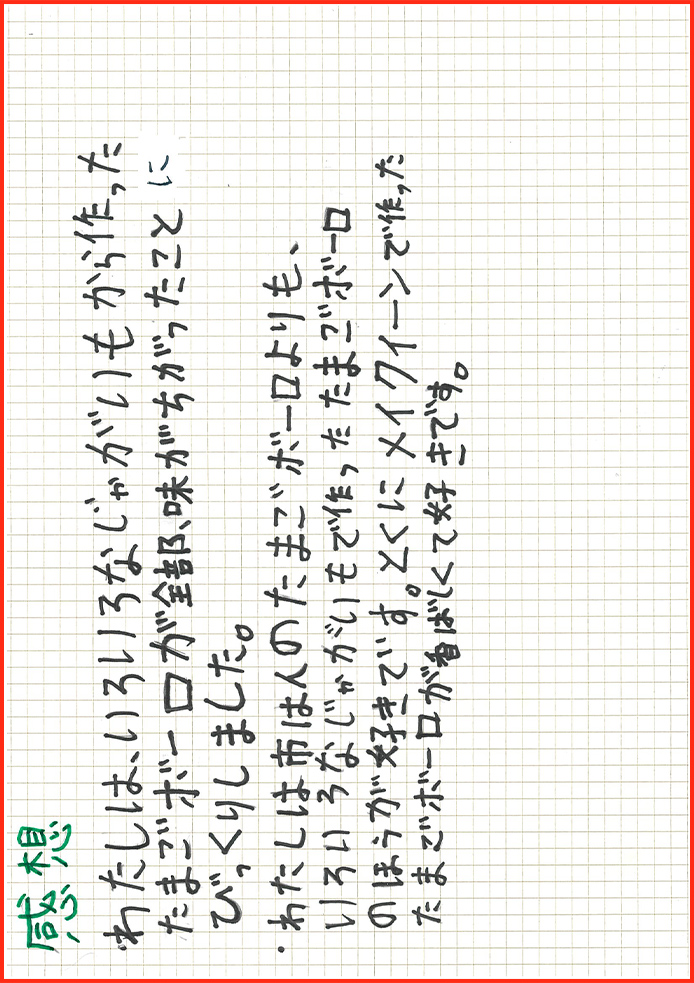 感想
・わたしは、いろいろなじゃがいもから作った
たまごボーロが全部、味がちがったことに
びっくりしました。
・わたしは市はんのたまごボーロよりも、
いろいろなじゃがいもで作ったたまごボーロ
のほうが好きです。とくにメイクイーンで作った
たまごボーロが香ばしくて好きです。